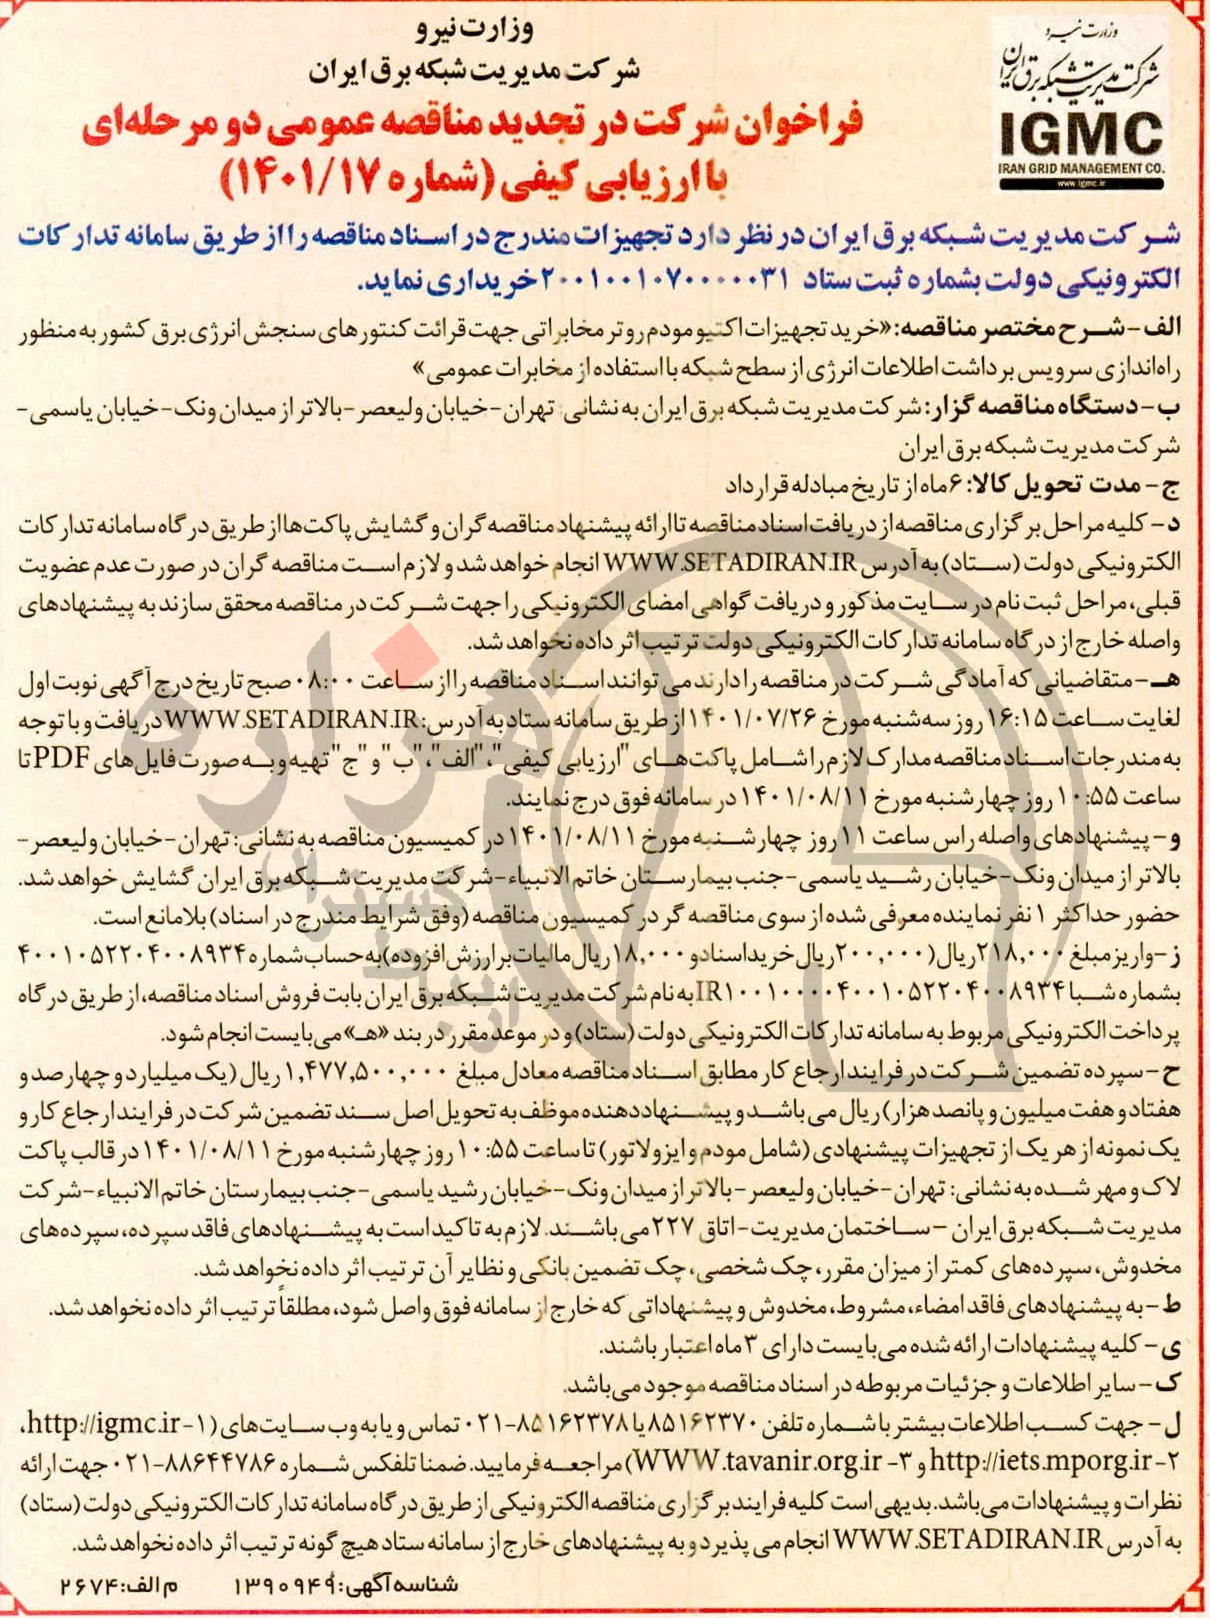 وزارت نیرو
شرکت مدیریت شبکه برق ایران
وزارت نیرو
شرکت مدیریت شبکه برق ایران
IGMC
IRAN GRID MANAGEMENT CO.
www.igmc.ir
فراخوان شرکت در تجدید مناقصه عمومی دو مرحله‌ای
با ارزیابی کیفی (شماره ۱۴۰۱/۱۷)
شرکت مدیریت شبکه برق ایران در نظر دارد تجهیزات مندرج در اسناد مناقصه را از طریق سامانه تدارکات
الکترونیکی دولت بشماره ثبت ستاد ۲۰۰۱۰۰۱۰۷۰۰۰۰۰۳۱ خریداری نماید.
الف- شرح مختصر مناقصه: «خرید تجهیزات اکتیو مودم روتر مخابراتی جهت قرائت کنتورهای سنجش انرژی برق کشور به منظور
راه‌اندازی سرویس برداشت اطلاعات انرژی از سطح شبکه با استفاده از مخابرات عمومی»
ب- دستگاه مناقصه گزار: شرکت مدیریت شبکه برق ایران به نشانی: تهران- خیابان ولیعصر- بالاتر از میدان ونک- خیابان یاسمی-
شرکت مدیریت شبکه برق ایران
ج- مدت تحویل کالا: ۶ ماه از تاریخ مبادله قرارداد
د- کلیه مراحل برگزاری مناقصه از دریافت اسناد مناقصه تا ارائه پیشنهاد مناقصه گران و گشایش پاکت‌ها از طریق درگاه سامانه تدارکات
الکترونیکی دولت (ستاد) به آدرس WWW.SETADIRAN.IR انجام خواهد شد و لازم است مناقصه گران در صورت عدم عضویت
قبلی، مراحل ثبت نام در سایت مذکور و دریافت گواهی امضای الکترونیکی را جهت شرکت در مناقصه محقق سازند به پیشنهادهای
واصله خارج از درگاه سامانه تدارکات الکترونیکی دولت ترتیب اثر داده نخواهد شد.
هـ- متقاضیانی که آمادگی شرکت در مناقصه را دارند می توانند اسناد مناقصه را از ساعت ۰۸:۰۰ صبح تاریخ درج آگهی نوبت اول
لغایت ساعت ۱۶:۱۵ روز سه‌شنبه مورخ ۱۴۰۱/۰۷/۲۶ از طریق سامانه ستاد به آدرس: WWW.SETADIRAN.IR دریافت و با توجه
به مندرجات اسناد مناقصه مدارک لازم را شامل پاکت‌های "ارزیابی کیفی"، "الف"، "ب" و "ج" تهیه و به صورت فایل‌های PDF تا
ساعت ۱۰:۵۵ روز چهارشنبه مورخ ۱۴۰۱/۰۸/۱۱ در سامانه فوق درج نمایند.
و- پیشنهادهای واصله راس ساعت ۱۱ روز چهارشنبه مورخ ۱۴۰۱/۰۸/۱۱ در کمیسیون مناقصه به نشانی: تهران- خیابان ولیعصر-
بالاتر از میدان ونک- خیابان رشید یاسمی- جنب بیمارستان خاتم الانبیاء- شرکت مدیریت شبکه برق ایران گشایش خواهد شد.
حضور حداکثر ۱ نفر نماینده معرفی شده از سوی مناقصه گر در کمیسیون مناقصه (وفق شرایط مندرج در اسناد) بلامانع است.
ز- واریز مبلغ ۲۱۸,۰۰۰ ریال (۲۰۰,۰۰۰ ریال خرید اسناد و ۱۸,۰۰۰ ریال مالیات بر ارزش افزوده) به حساب شماره ۴۰۰۱۰۵۲۲۰۴۰۰۸۹۳۴
بشماره شبا IR۱۰۰۱۰۰۰۰۴۰۰۱۰۵۲۲۰۴۰۰۸۹۳۴ به نام شرکت مدیریت شبکه برق ایران بابت فروش اسناد مناقصه، از طریق درگاه
پرداخت الکترونیکی مربوط به سامانه تدارکات الکترونیکی دولت (ستاد) و در موعد مقرر در بند «هـ» می‌بایست انجام شود.
ح- سپرده تضمین شرکت در فرایند ارجاع کار مطابق اسناد مناقصه معادل مبلغ ۱,۴۷۷,۵۰۰,۰۰۰ ریال (یک میلیارد و چهارصد و
هفتاد و هفت میلیون و پانصد هزار) ریال می باشد و پیشنهاددهنده موظف به تحویل اصل سند تضمین شرکت در فرایند ارجاع کار و
یک نمونه از هر یک از تجهیزات پیشنهادی (شامل مودم و ایزولاتور) تا ساعت ۱۰:۵۵ روز چهارشنبه مورخ ۱۴۰۱/۰۸/۱۱ در قالب پاکت
لاک و مهر شده به نشانی: تهران- خیابان ولیعصر- بالاتر از میدان ونک- خیابان رشید یاسمی- جنب بیمارستان خاتم الانبیاء- شرکت
مدیریت شبکه برق ایران - ساختمان مدیریت- اتاق ۲۲۷ می باشند. لازم به تاکید است به پیشنهادهای فاقد سپرده، سپرده‌های
مخدوش، سپرده‌های کمتر از میزان مقرر، چک شخصی، چک تضمین بانکی و نظایر آن ترتیب اثر داده نخواهد شد.
ط- به پیشنهادهای فاقد امضاء، مشروط، مخدوش و پیشنهاداتی که خارج از سامانه فوق واصل شود، مطلقاً ترتیب اثر داده نخواهد شد.
ی- کلیه پیشنهادات ارائه شده می‌بایست دارای ۳ ماه اعتبار باشند.
ک- سایر اطلاعات و جزئیات مربوطه در اسناد مناقصه موجود می‌باشد.
ل- جهت کسب اطلاعات بیشتر با شماره تلفن ۸۵۱۶۲۳۷۰ یا ۸۵۱۶۲۳۷۸-۰۲۱ تماس و یا به وب سایت‌های (۱- http://igmc.ir،
۲- http://iets.mporg.ir و ۳- WWW.tavanir.org.ir) مراجعه فرمایید. ضمنا تلفکس شماره ۸۸۶۴۴۷۸۶-۰۲۱ جهت ارائه
نظرات و پیشنهادات می‌باشد. بدیهی است کلیه فرایند برگزاری مناقصه الکترونیکی از طریق درگاه سامانه تدارکات الکترونیکی دولت (ستاد)
به آدرس WWW.SETADIRAN.IR انجام می پذیرد و به پیشنهادهای خارج از سامانه ستاد هیچ گونه ترتیب اثر داده نخواهد شد.
شناسه آگهی: ۱۳۹۰۹۴۹ م الف: ۲۶۷۴
هزاره